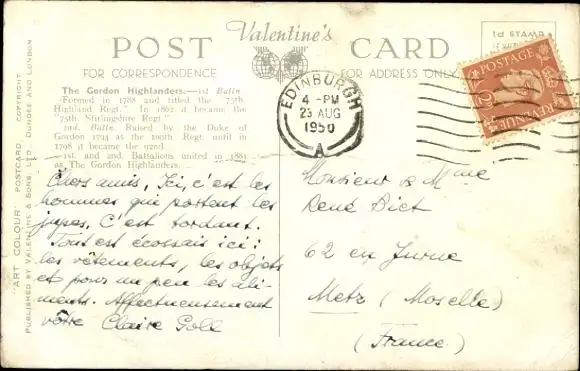 Valentine's
POST CARD
FOR CORRESPONDENCE
FOR ADDRESS ONLY
1d STAMP
The Gordon Highlanders.—1st Battn.
(Formed in 1788 and titled the "75th
Highland Regt." In 1862 it became the
"75th Stirlingshire Regt."
2nd. Battn. Raised by the Duke of
Gordon 1794 as the 100th Regt. until in
1798 it became the 92nd.
1st. and 2nd. Battalions united in 1881
as The Gordon Highlanders.
"ART COLOUR" POSTCARD. COPYRIGHT.
PUBLISHED BY VALENTINE & SONS, LTD., DUNDEE AND LONDON
EDINBURGH
4 - PM
23 AUG
1950
A
POSTAGE
REVENUE
Chers amis, Ici, c'est les
hommes qui portent les
jupes. C'est tordant.
Tout est écossais ici:
les vêtements, les objets
et pour un peu les ali-
ments. Affectueusement
vôtre Claire Goll
Monsieur & Mme
René
62 en Jurue
Metz (Moselle)
(France)